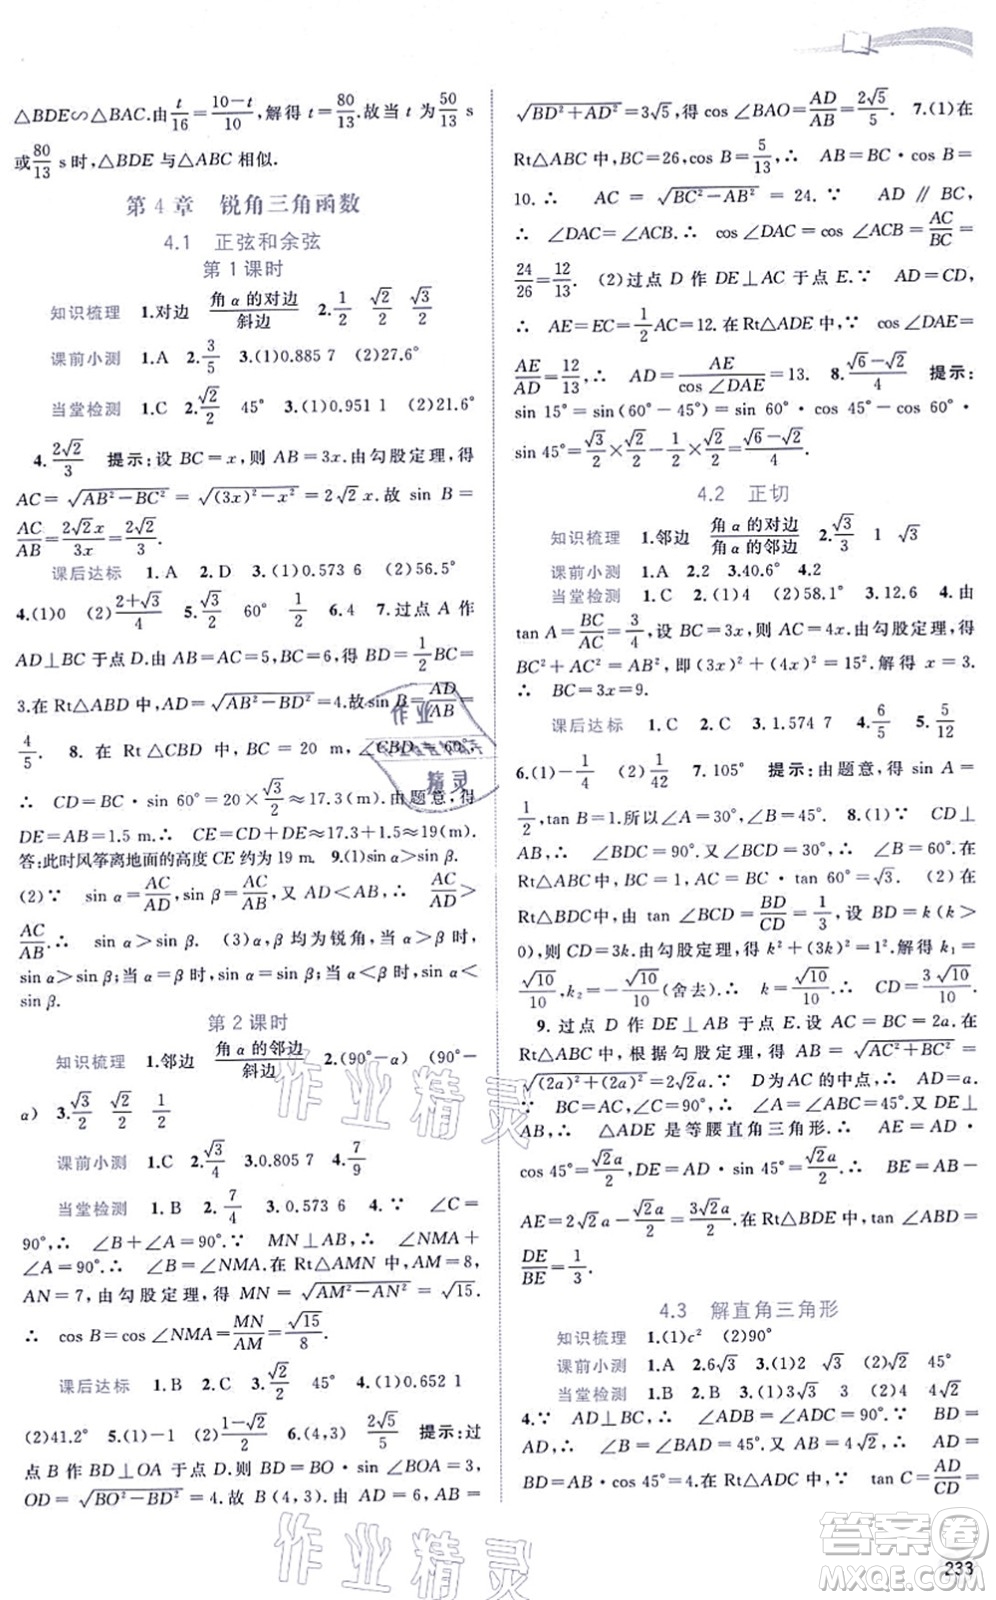 △BDE∽△BAC.由t/16=(10-t)/10,解得t=80/13.故当t为50/13 s
或80/13 s时,△BDE与△ABC相似.
第4章 锐角三角函数
4.1 正弦和余弦
第1课时
知识梳理 1.对边 角α的对边/斜边 2.1/2 √2/2 √3/2
课前小测 1.A 2.3/5 3.(1)0.885 7 (2)27.6°
当堂检测 1.C 2.√2/2 45° 3.(1)0.951 1 (2)21.6°
4.2√2/3 提示:设BC=x,则AB=3x.由勾股定理,得
AC=√(AB²-BC²)=√((3x)²-x²)=2√2x.故 sin B=
AC/AB=2√2x/3x=2√2/3.
课后达标 1.A 2.D 3.(1)0.573 6 (2)56.5°
4.(1)0 (2)(2+√3)/4 5.√3/2 60° 1/2 6.4 7.过点A作
AD⊥BC于点D.由AB=AC=5,BC=6,得BD=1/2BC=
3.在Rt△ABD中,AD=√(AB²-BD²)=4.故sin B=AD/AB=
4/5. 8.在Rt△CBD中,BC=20 m,∠CBD=60°,
∴ CD=BC·sin 60°=20×√3/2≈17.3(m).由题意,得
DE=AB=1.5 m.∴ CE=CD+DE≈17.3+1.5≈19(m).
答:此时风筝离地面的高度CE约为19 m. 9.(1)sin α>sin β.
(2)∵ sin α=AC/AD,sin β=AC/AB,又AD<AB,∴ AC/AD>
AC/AB.∴ sin α>sin β. (3)α,β均为锐角,当α>β时,
sin α>sin β;当α=β时,sin α=sin β;当α<β时,sin α<
sin β.
第2课时
知识梳理 1.邻边 角α的邻边/斜边 2.(90°-α) (90°-
α) 3.√3/2 √2/2 1/2
课前小测 1.C 2.√3/4 3.0.805 7 4.7/9
当堂检测 1.B 2.7/4 3.0.573 6 4.∵ ∠C=
90°,∴ ∠B+∠A=90°.∵ MN⊥AB,∴ ∠NMA+
∠A=90°.∴ ∠B=∠NMA.在Rt△AMN中,AM=8,
AN=7,由勾股定理,得MN=√(AM²-AN²)=√15.
∴ cos B=cos∠NMA=MN/AM=√15/8.
课后达标 1.B 2.C 3.√2/2 45° 4.(1)0.652 1
(2)41.2° 5.(1)-1 (2)(1-√2)/2 6.(4,3) 2√5/5 提示:过
点B作BD⊥OA于点D.则BD=BO·sin∠BOA=3,
OD=√(BO²-BD²)=4.故B(4,3).由AD=6,AB=
√(BD²+AD²)=3√5,得cos∠BAO=AD/AB=2√5/5. 7.(1)在
Rt△ABC中,BC=26,cos B=5/13,∴ AB=BC·cos B=
10.∴ AC=√(BC²-AB²)=24.∵ AD∥BC,
∴ ∠DAC=∠ACB.∴ cos∠DAC=cos∠ACB=AC/BC=
24/26=12/13. (2)过点D作DE⊥AC于点E.∵ AD=CD,
∴ AE=EC=1/2AC=12.在Rt△ADE中,∵ cos∠DAE=
AE/AD=12/13,∴ AD=AE/cos∠DAE=13. 8.(√6-√2)/4 提示:
sin 15°=sin(60°-45°)=sin 60°·cos 45°-cos 60°·
sin 45°=√3/2×√2/2-1/2×√2/2=(√6-√2)/4.
4.2 正切
知识梳理 1.邻边 角α的对边/角α的邻边 2.√3/3 1 √3
课前小测 1.A 2.2 3.40.6° 4.2
当堂检测 1.C 2.(1)4 (2)58.1° 3.12.6 4.由
tan A=BC/AC=3/4,设BC=3x,则AC=4x.由勾股定理,得
BC²+AC²=AB²,即(3x)²+(4x)²=15².解得x=3.
∴ BC=3x=9.
课后达标 1.C 2.C 3.1.574 7 4.6/5 5.5/12
6.(1)-1/4 (2)1/42 7.105° 提示:由题意,得sin A=
1/2,tan B=1.所以∠A=30°,∠B=45°. 8.(1)∵ CD⊥
AB,∴ ∠BDC=90°.又∠BCD=30°,∴ ∠B=60°.在
Rt△BDC中,CD=BD·tan B=1×tan 60°=√3. (2)在
Rt△BDC中,由tan∠BCD=BD/CD=1/3,设BD=k(k>
0),则CD=3k.由勾股定理,得k²+(3k)²=1².解得k₁=
√10/10,k₂=-√10/10(舍去).∴ k=√10/10.∴ CD=3√10/10.
9.过点D作DE⊥AB于点E.设AC=BC=2a.在
Rt△ABC中,根据勾股定理,得AB=√(AC²+BC²)=
√((2a)²+(2a)²)=2√2a.∵ D为AC的中点,∴ AD=a.
∵ BC=AC,∠C=90°,∴ ∠A=∠ABC=45°.又DE⊥
AB,∴ △ADE是等腰直角三角形.∴ AE=AD·
cos 45°=√2a/2,DE=AD·sin 45°=√2a/2.∴ BE=AB-
AE=2√2a-√2a/2=3√2a/2.在Rt△BDE中,tan∠ABD=
DE/BE=1/3.
4.3 解直角三角形
知识梳理 1.(1)c² (2)90°
课前小测 1.A 2.6√3 3.(1)2 √3 (2)√2 45°
当堂检测 1.B 2.B 3.(1)3√3 3 (2)4 4√2
4.∵ AD⊥BC,∴ ∠ADB=∠ADC=90°.∵ BD=
AD,∴ ∠B=∠BAD=45°.又AB=4√2,∴ AD=
BD=AB·cos 45°=4.在Rt△ADC中,∵ tan C=AD/CD=
233
作业精灵
作业精灵
作业
精灵
答案卷
MXQE.COM